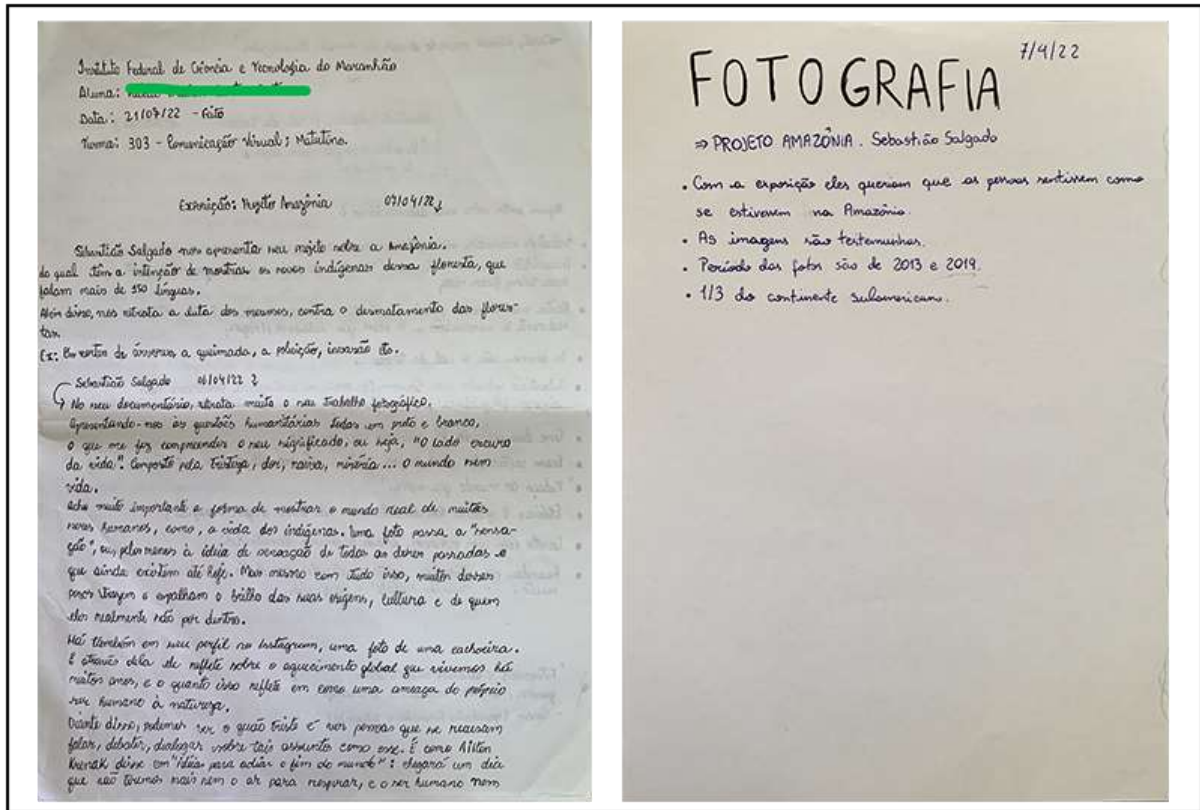 Instituto Federal de Ciência e Tecnologia do Maranhão
Aluna:
Data: 21/07/22 - Feito
Turma: 303 - Comunicação Visual; Matutino.
Exposição: Projeto Amazônia 07/04/22
Sebastião Salgado nos apresentar seu projeto sobre a Amazônia.
do qual têm a intenção de mostrar os povos indígenas dessa floresta, que
falam mais de 150 línguas.
Além disso, nos retrata a luta dos mesmos, contra o desmatamento das flores-
tas.
Ex: Os cortes de árvores, a queimada, a poluição, invasão etc.
Sebastião Salgado 06/04/22
No seu documentário, retrata muito o seu trabalho fotográfico.
Apresentando-nos as questões humanitárias todas em preto e branco,
o que me fez compreender o seu significado, ou seja, "O lado escuro
da vida". Composto pela tristeza, dor, raiva, miséria... O mundo sem
vida.
Acho muito importante a forma de mostrar o mundo real de muitos
seres humanos, como, a vida dos indígenas. Uma foto passa a "sensa-
ção", ou pelo menos à ideia de sensação de todas as dores passadas e
que ainda existem até hoje. Mas mesmo com tudo isso, muitos desses
povos trazem e espalham o brilho das suas origens, cultura e de quem
eles realmente são por dentro.
Há também em seu perfil no Instagram, uma foto de uma cachoeira.
É através dela ele reflete sobre o aquecimento global que vivemos há
muitos anos, e o quanto isso reflete em como uma ameaça do próprio
ser humano à natureza.
Diante disso, podemos ver o quão triste é ver pessoas que se recusam
falar, debater, dialogar sobre tais assuntos como esse. É como Ailton
Krenak disse em "ideias para adiar o fim do mundo": chegará um dia
que não teremos mais nem o ar para respirar, e o ser humano nem
7/4/22
FOTOGRAFIA
⇒ PROJETO AMAZÔNIA. Sebastião Salgado
• Com a exposição eles queriam que as pessoas sentissem como
se estivessem na Amazônia.
• As imagens são testemunhas.
• Período das fotos são de 2013 e 2019.
• 1/3 do continente sulamericano.